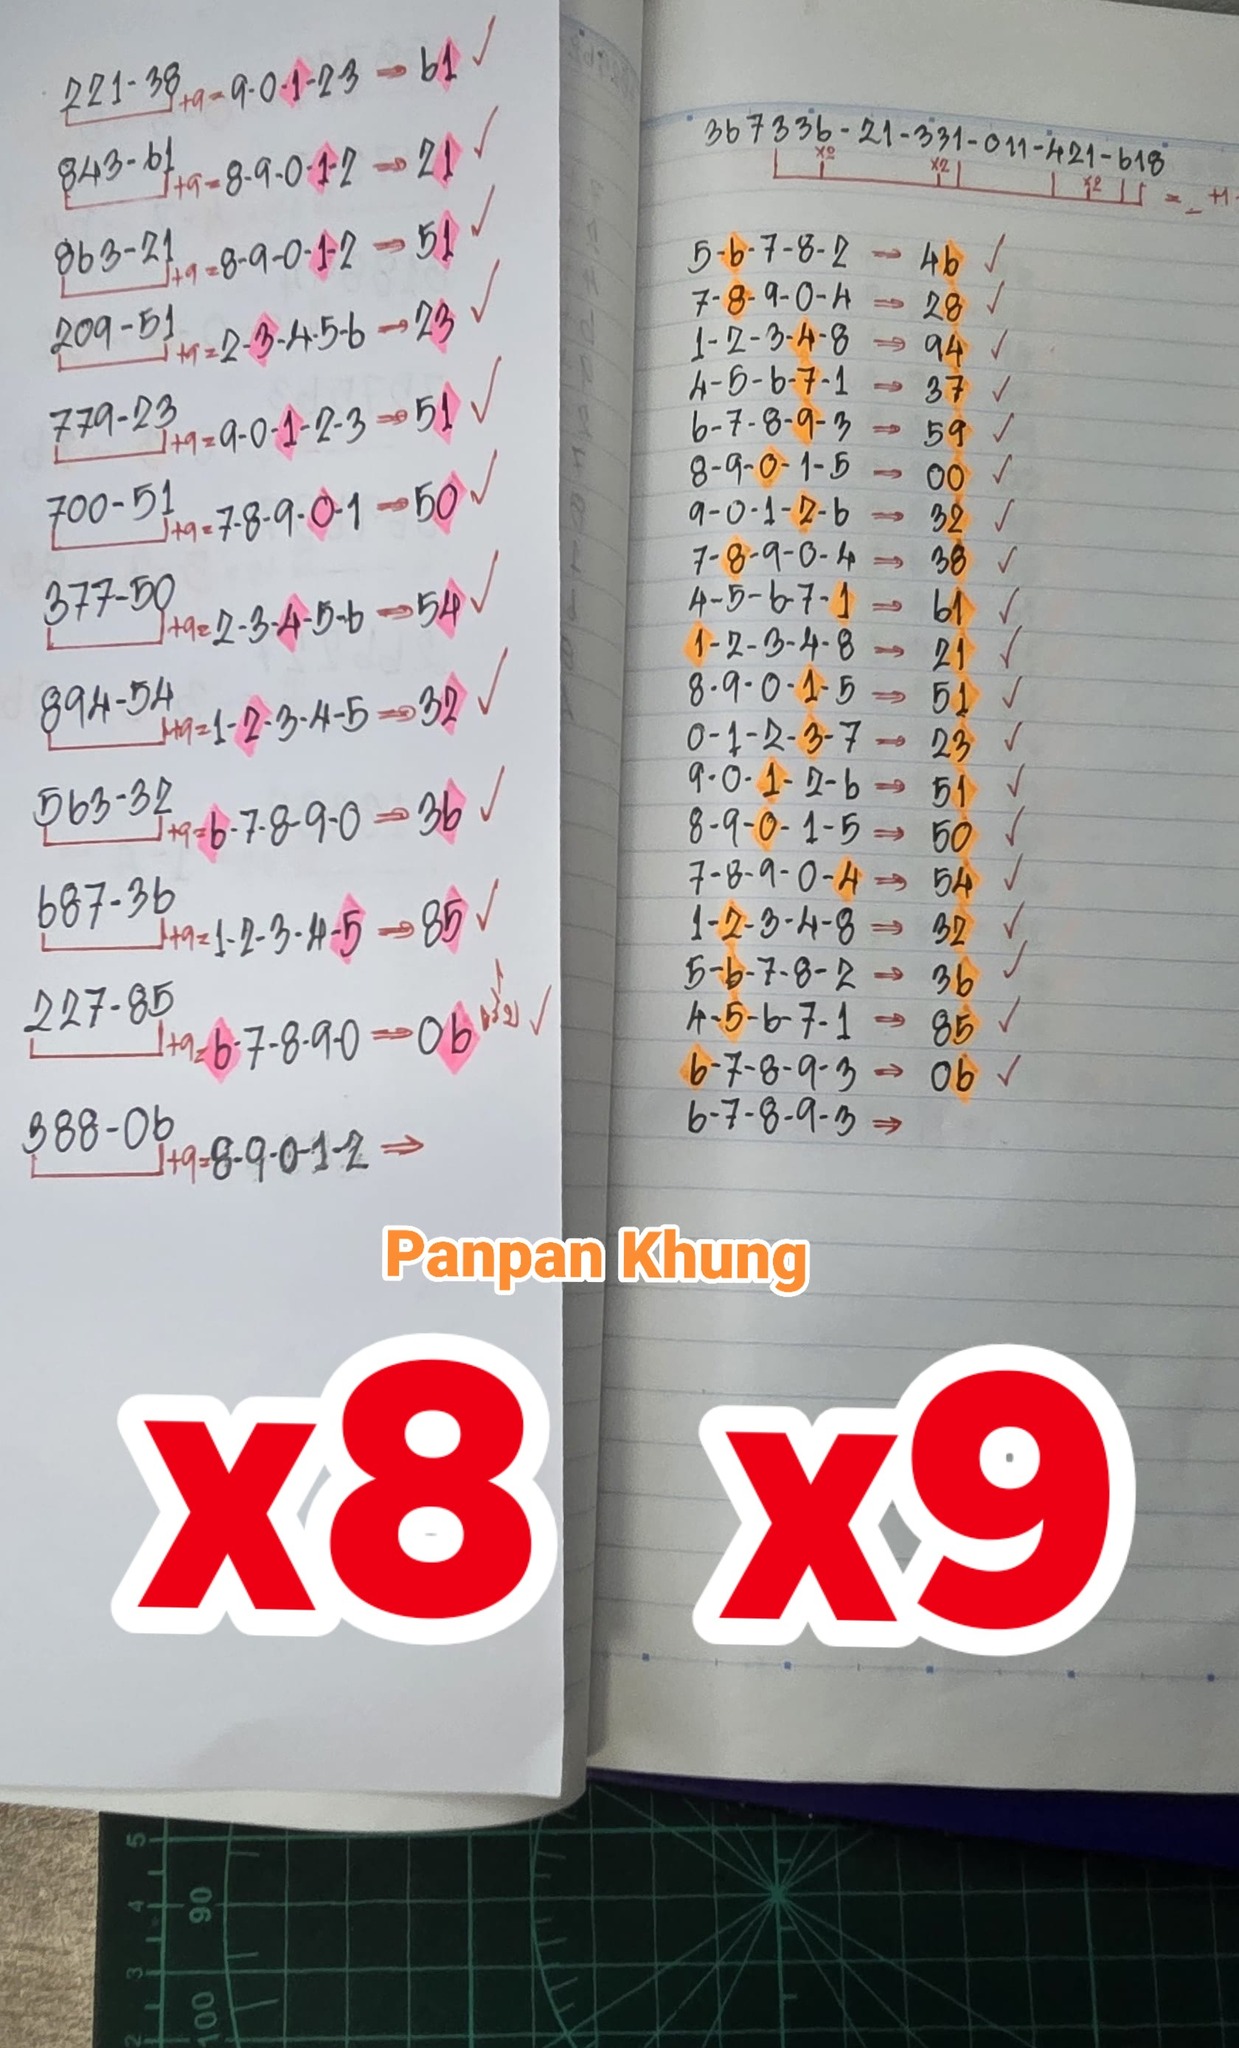 221-38 +9= 9-0-1-23 → 61 ✓
843-61 +9= 8-9-0-1-2 → 21 ✓
863-21 +9= 8-9-0-1-2 → 51 ✓
209-51 +9= 2-3-4-5-6 → 23 ✓
779-23 +9= 9-0-1-2-3 → 51 ✓
700-51 +9= 7-8-9-0-1 → 50 ✓
377-50 +9= 2-3-4-5-6 → 54 ✓
894-54 +9= 1-2-3-4-5 → 32 ✓
563-32 +9= 6-7-8-9-0 → 36 ✓
687-36 +9= 1-2-3-4-5 → 85 ✓
227-85 +9= 6-7-8-9-0 → 06 ✓
388-06 +9= 8-9-0-1-2 ⇒
367336-21-331-011-421-618
x2 x2 x2 = +1
5-6-7-8-2 → 46 ✓
7-8-9-0-4 → 28 ✓
1-2-3-4-8 → 94 ✓
4-5-6-7-1 → 37 ✓
6-7-8-9-3 → 59 ✓
8-9-0-1-5 → 00 ✓
9-0-1-2-6 → 32 ✓
7-8-9-0-4 → 38 ✓
4-5-6-7-1 → 61 ✓
1-2-3-4-8 → 21 ✓
8-9-0-1-5 → 51 ✓
0-1-2-3-7 → 23 ✓
9-0-1-2-6 → 51 ✓
8-9-0-1-5 → 50 ✓
7-8-9-0-4 → 54 ✓
1-2-3-4-8 → 32 ✓
5-6-7-8-2 → 36 ✓
4-5-6-7-1 → 85 ✓
6-7-8-9-3 → 06 ✓
6-7-8-9-3 ⇒
Panpan Khung
x8 x9
5
4
3
2
90
100